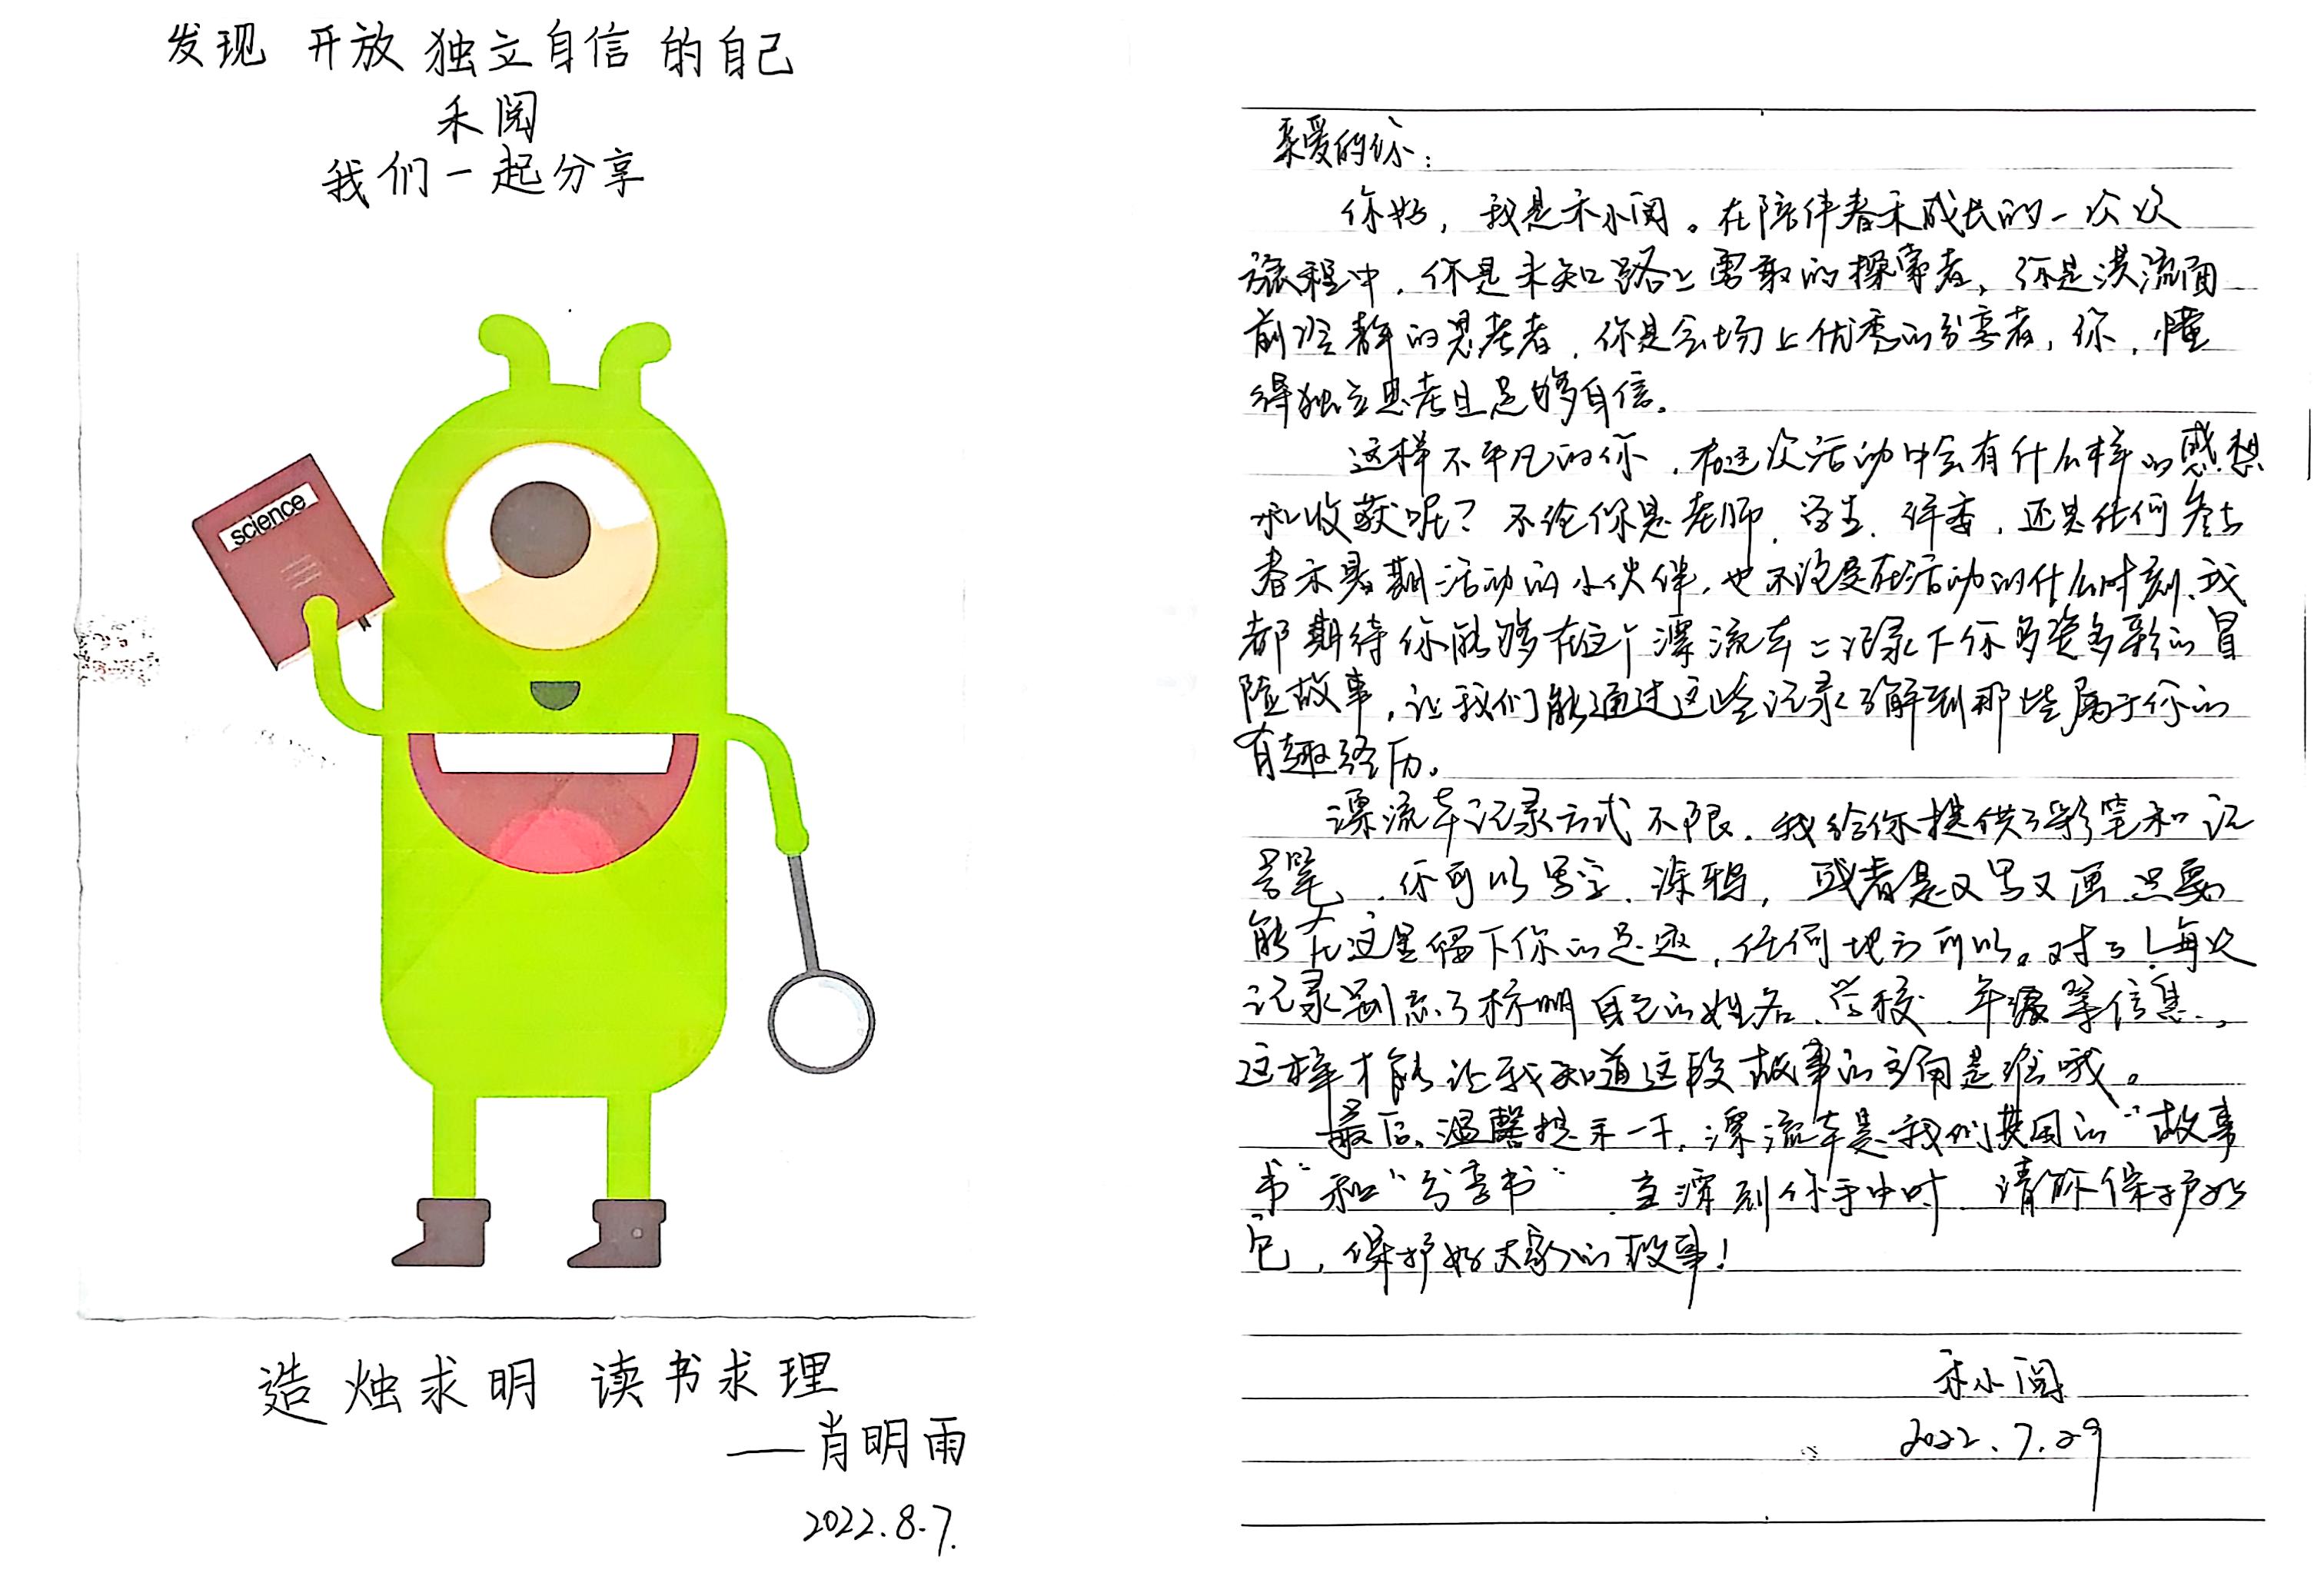 发现 开放 独立自信 的自己
禾阅
我们一起分享
science
造烛求明 读书求理
——肖明雨
2022.8.7.
亲爱的你：
你好，我是禾小阅。在陪伴春禾成长的一次次
旅程中，你是未知路上勇敢的探索者，你是洪流面
前冷静的思考者，你是会场上优秀的分享者，你，懂
得独立思考且足够自信。
这样不平凡的你，在这次活动中会有什么样的感想
和收获呢？不论你是老师、学生、评委，还是任何参与
春禾暑期活动的小伙伴，也不论是在活动的什么时刻，我
都期待你能够在这个漂流本上记录下你多姿多彩的冒
险故事，让我们能通过这些记录了解到那些属于你的
有趣经历。
漂流本记录方式不限，我给你提供了彩笔和记
号笔，你可以写字、涂鸦，或者是又写又画，只要
能在这里留下你的足迹，任何地方可以。对了！每次
记录别忘了标明自己的姓名、学校、年级等信息，
这样才能让我知道这段故事的主角是谁哦。
最后，温馨提示一下，漂流本是我们共同的“故事
书”和“分享书”，当漂到你手中时，请你保护好
它，保护好大家的故事！
禾小阅
2022.7.29